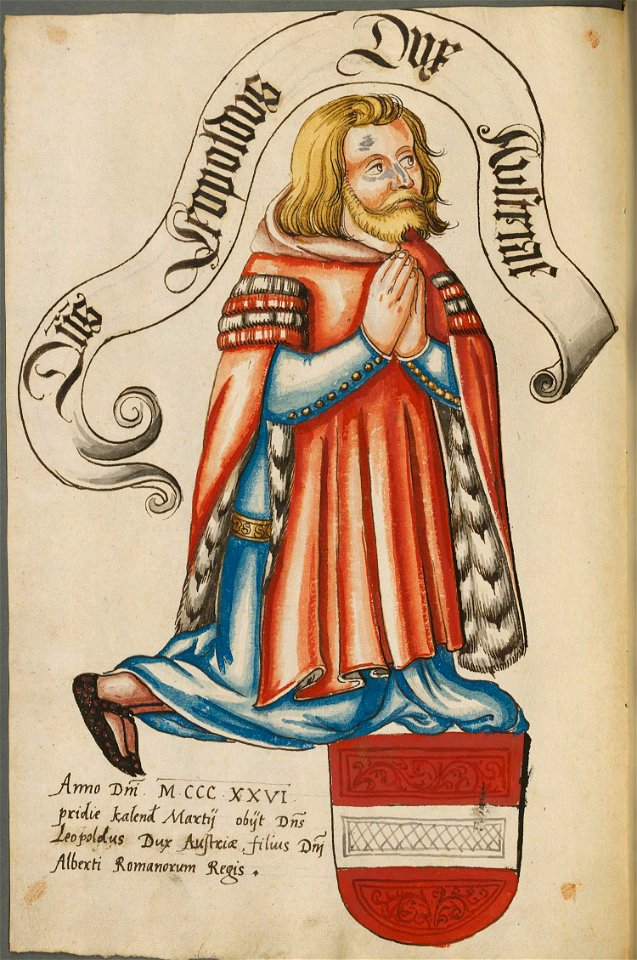 Dn̄s Leopoldus Dux Austriae
Anno Dn̄i M CCC XXVI
pridie kalend Martij obijt Dn̄s
Leopoldus Dux Austriæ, filius Dn̄i
Alberti Romanorum Regis.